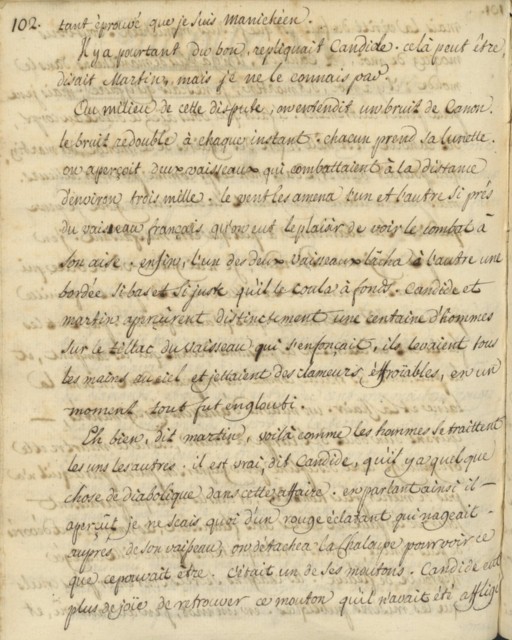 102. tant éprouvé que je suis Manichéen.
Il y a pourtant du bon, repliquait Candide. celà peut être
disait Martin, mais je ne le connais pas.
Au milieu de cette dispute, on entendit un bruit de Canon.
le bruit redouble à chaque instant. chacun prend sa lunette.
on aperçoit deux vaisseaux qui combattaient à la distance
d'environ trois mille. le vent les amena l'un et l'autre si près
du vaisseau français qu'on eut le plaisir de voir le combat à
son aise. enfin, l'un des deux vaisseaux lâcha à l'autre une
bordée si bas et si juste qu'il le coula à fond. Candide et
martin aperçurent distinctement une centaine d'hommes
sur le tillac du vaisseau qui s'enfonçait, ils levaient tous
les mains au ciel et jettaient des clameurs effroiables, en un
moment tout fut englouti.
Eh bien, dit martin, voilà comme les hommes se traittent
les uns les autres: il est vrai, dit Candide, qu'il y a quelque
chose de diabolique dans cette affaire. en parlant ainsi il
aperçut je ne scais quoi d'un rouge éclatant qui nageait
auprès de son vaisseau, on détacha la chaloupe pour voir ce
que ce pouvait être. c'était un de ses moutons. Candide eut
plus de joïe de retrouver ce mouton qu'il n'avait été affligé